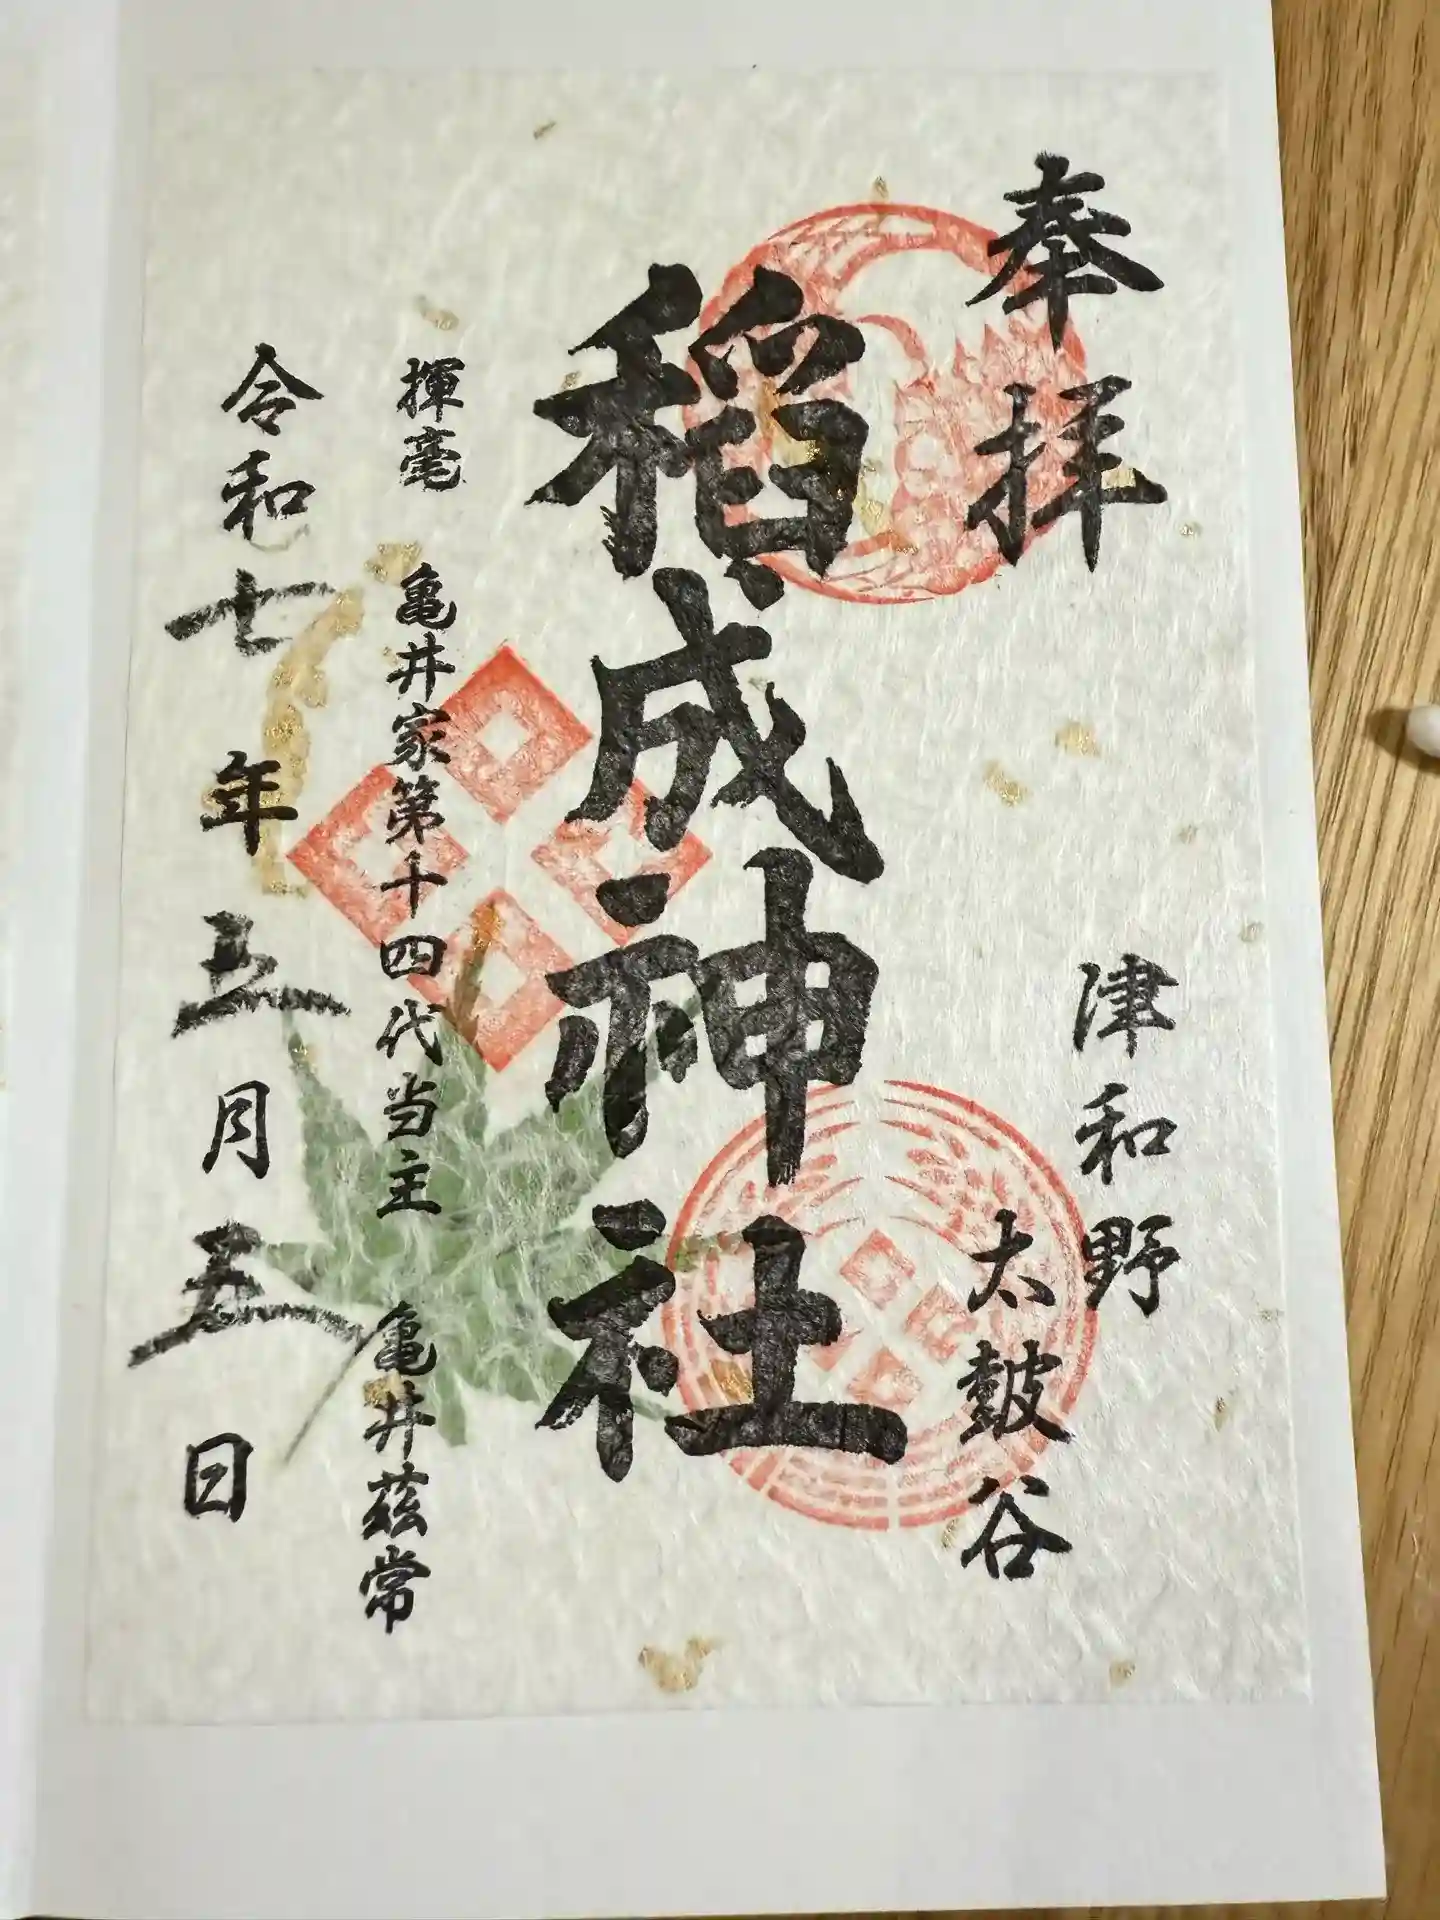 奉拝
津和野
太皷谷
稲成神社
揮毫 亀井家第十四代当主 亀井茲常
令和七年五月五日